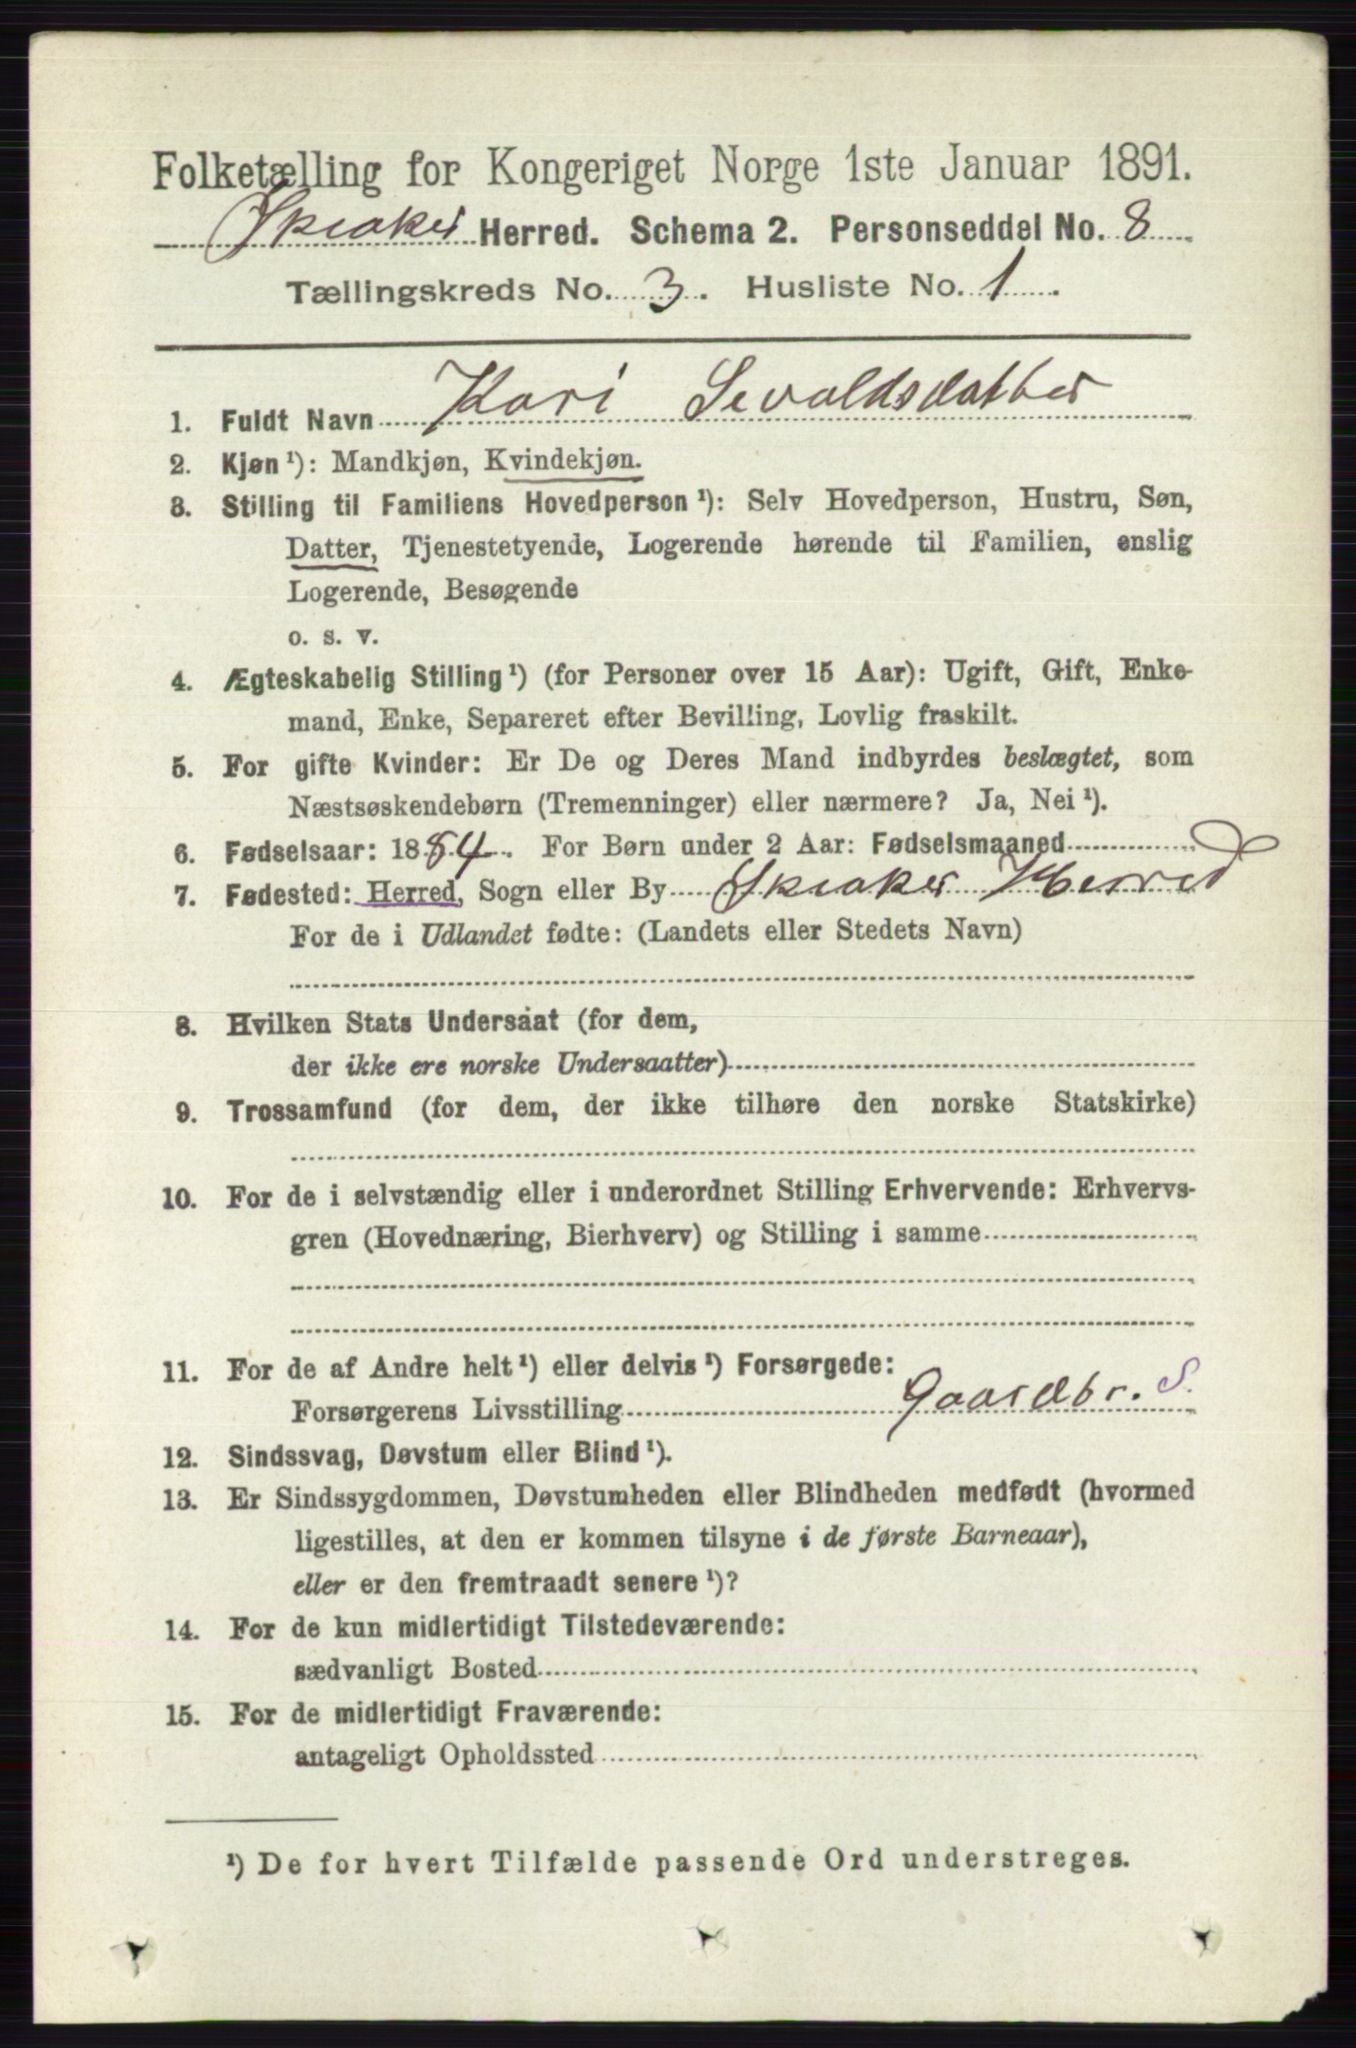 Folketælling for Kongeriget Norge 1ste Januar 1891.
Skiaker Herred. Schema 2. Personseddel No. 8
Tællingskreds No. 3. Husliste No. 1.
1. Fuldt Navn Kari Sevaldsdatter
2. Kjøn ¹): Mandkjøn, Kvindekjøn.
3. Stilling til Familiens Hovedperson ¹): Selv Hovedperson, Hustru, Søn,
Datter, Tjenestetyende, Logerende hørende til Familien, enslig
Logerende, Besøgende
o. s. v.
4. Ægteskabelig Stilling ¹) (for Personer over 15 Aar): Ugift, Gift, Enke-
mand, Enke, Separeret efter Bevilling, Lovlig fraskilt.
5. For gifte Kvinder: Er De og Deres Mand indbyrdes beslægtet, som
Næstsøskendebørn (Tremenninger) eller nærmere? Ja, Nei ¹).
6. Fødselsaar: 1884. For Børn under 2 Aar: Fødselsmaaned
7. Fødested: Herred, Sogn eller By Skiaker Herred
For de i Udlandet fødte: (Landets eller Stedets Navn)
8. Hvilken Stats Undersaat (for dem,
der ikke ere norske Undersaatter)
9. Trossamfund (for dem, der ikke tilhøre den norske Statskirke)
10. For de i selvstændig eller i underordnet Stilling Erhvervende: Erhvervs-
gren (Hovednæring, Bierhverv) og Stilling i samme
11. For de af Andre helt ¹) eller delvis ¹) Forsørgede:
Forsørgerens Livsstilling Gaardbr. S.
12. Sindssvag, Døvstum eller Blind ¹).
13. Er Sindssygdommen, Døvstumheden eller Blindheden medfødt (hvormed
ligestilles, at den er kommen tilsyne i de første Barneaar),
eller er den fremtraadt senere ¹)?
14. For de kun midlertidigt Tilstedeværende:
sædvanligt Bosted
15. For de midlertidigt Fraværende:
antageligt Opholdssted
¹) De for hvert Tilfælde passende Ord understreges.